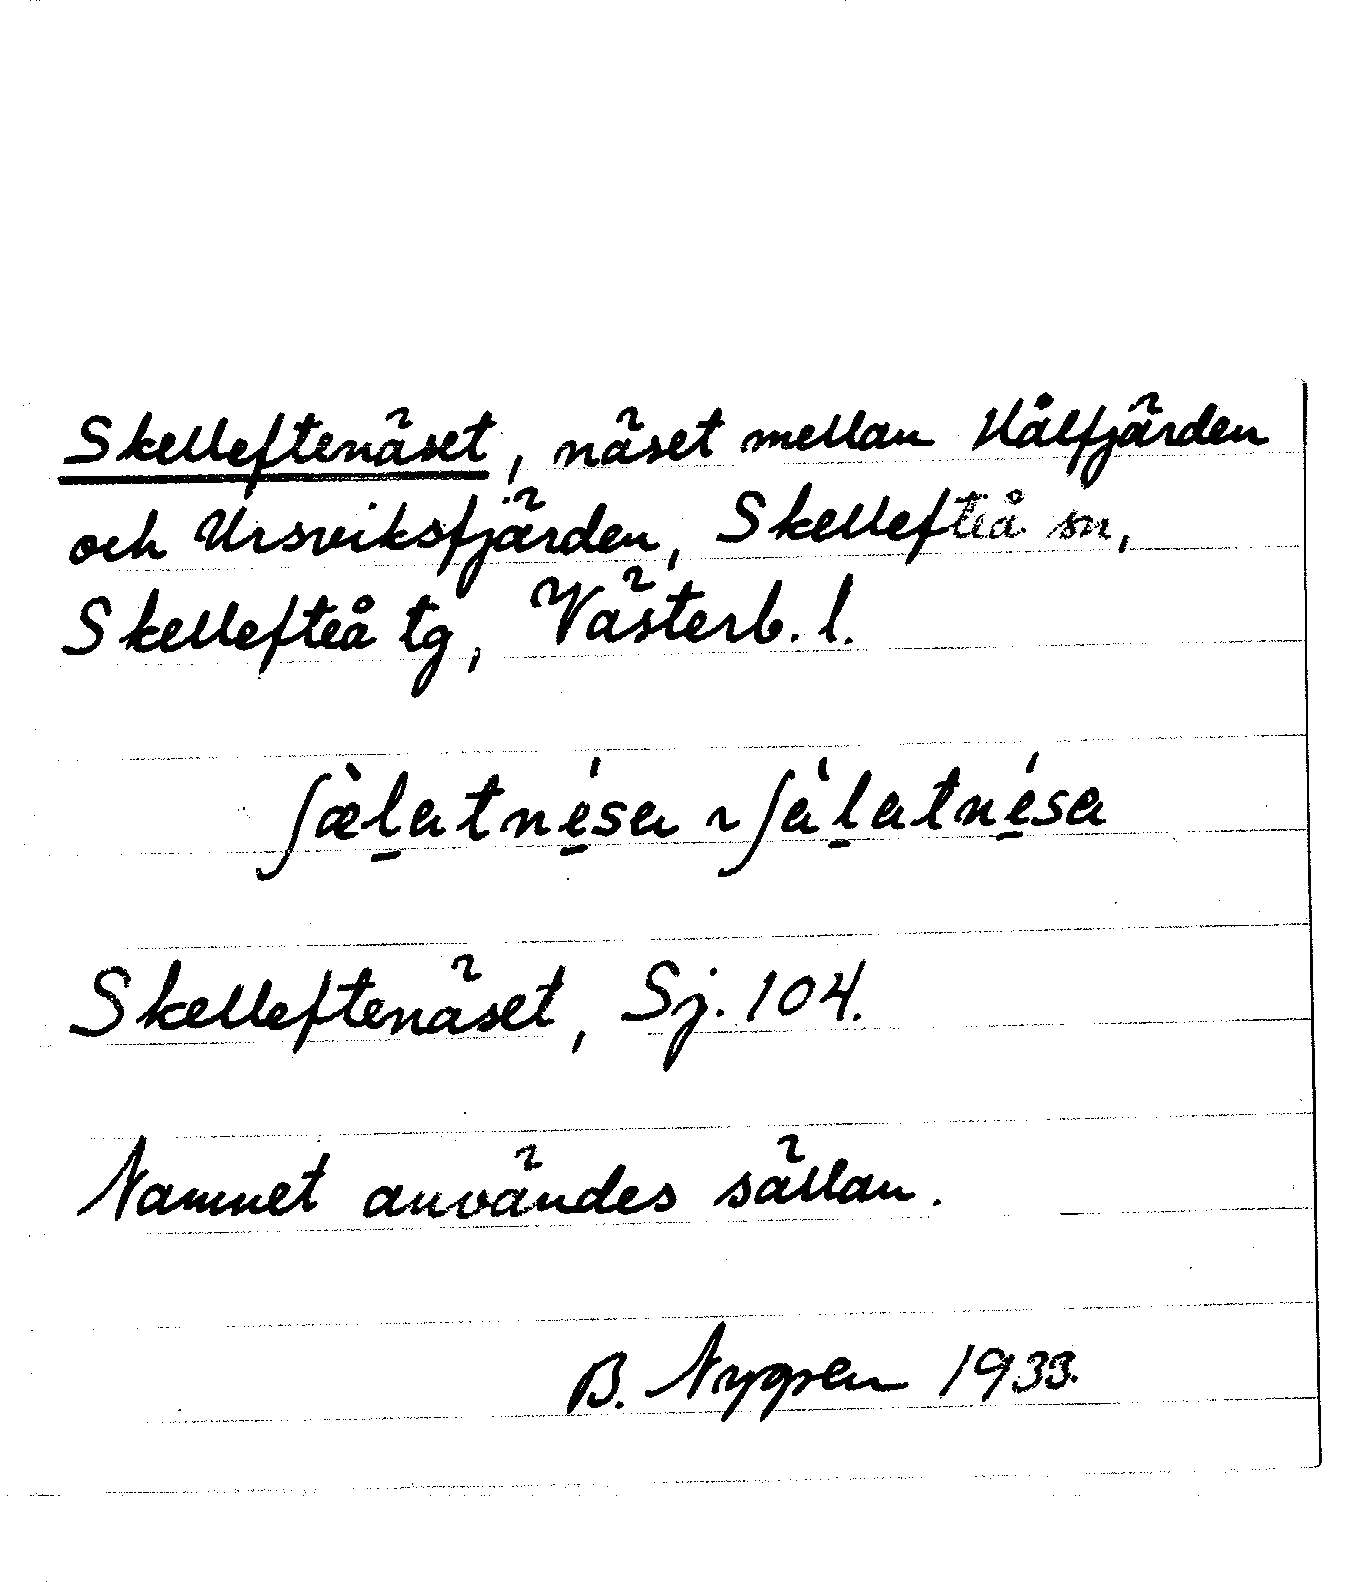 Skelleftenäset, näset mellan Hålfjärden
och Ursviksfjärden, Skellefteå sn,
Skellefteå tg, Västerb. l.
ʃæ̀l̠atné̠sa ~ ʃàl̠atné̠sa
Skelleftenäset, Sj. 104.
Namnet användes sällan.
B. Nygren 1933.